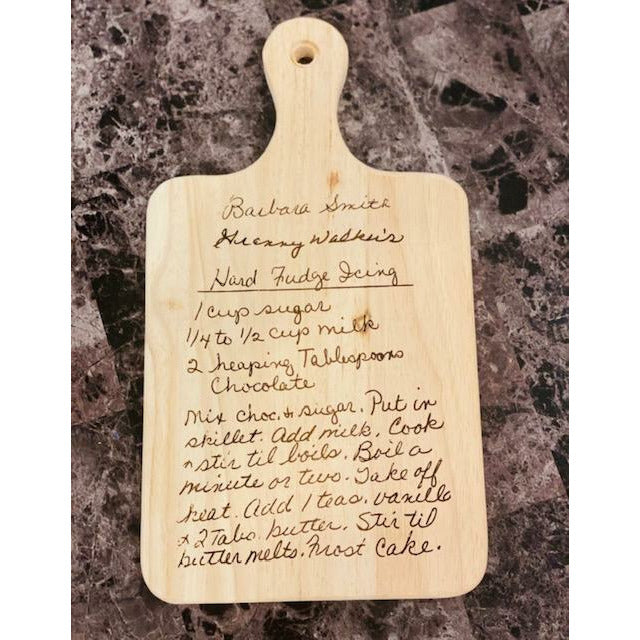 Barbara Smith
Granny Walker's
Hard Fudge Icing
1 cup sugar
1/4 to 1/2 cup milk
2 heaping Tablespoons
Chocolate
Mix choc. & sugar. Put in
skillet. Add milk. Cook
& stir til boils. Boil a
minute or two. Take off
heat. Add 1 teas. vanilla
& 2 Tabs. butter. Stir til
butter melts. Frost Cake.